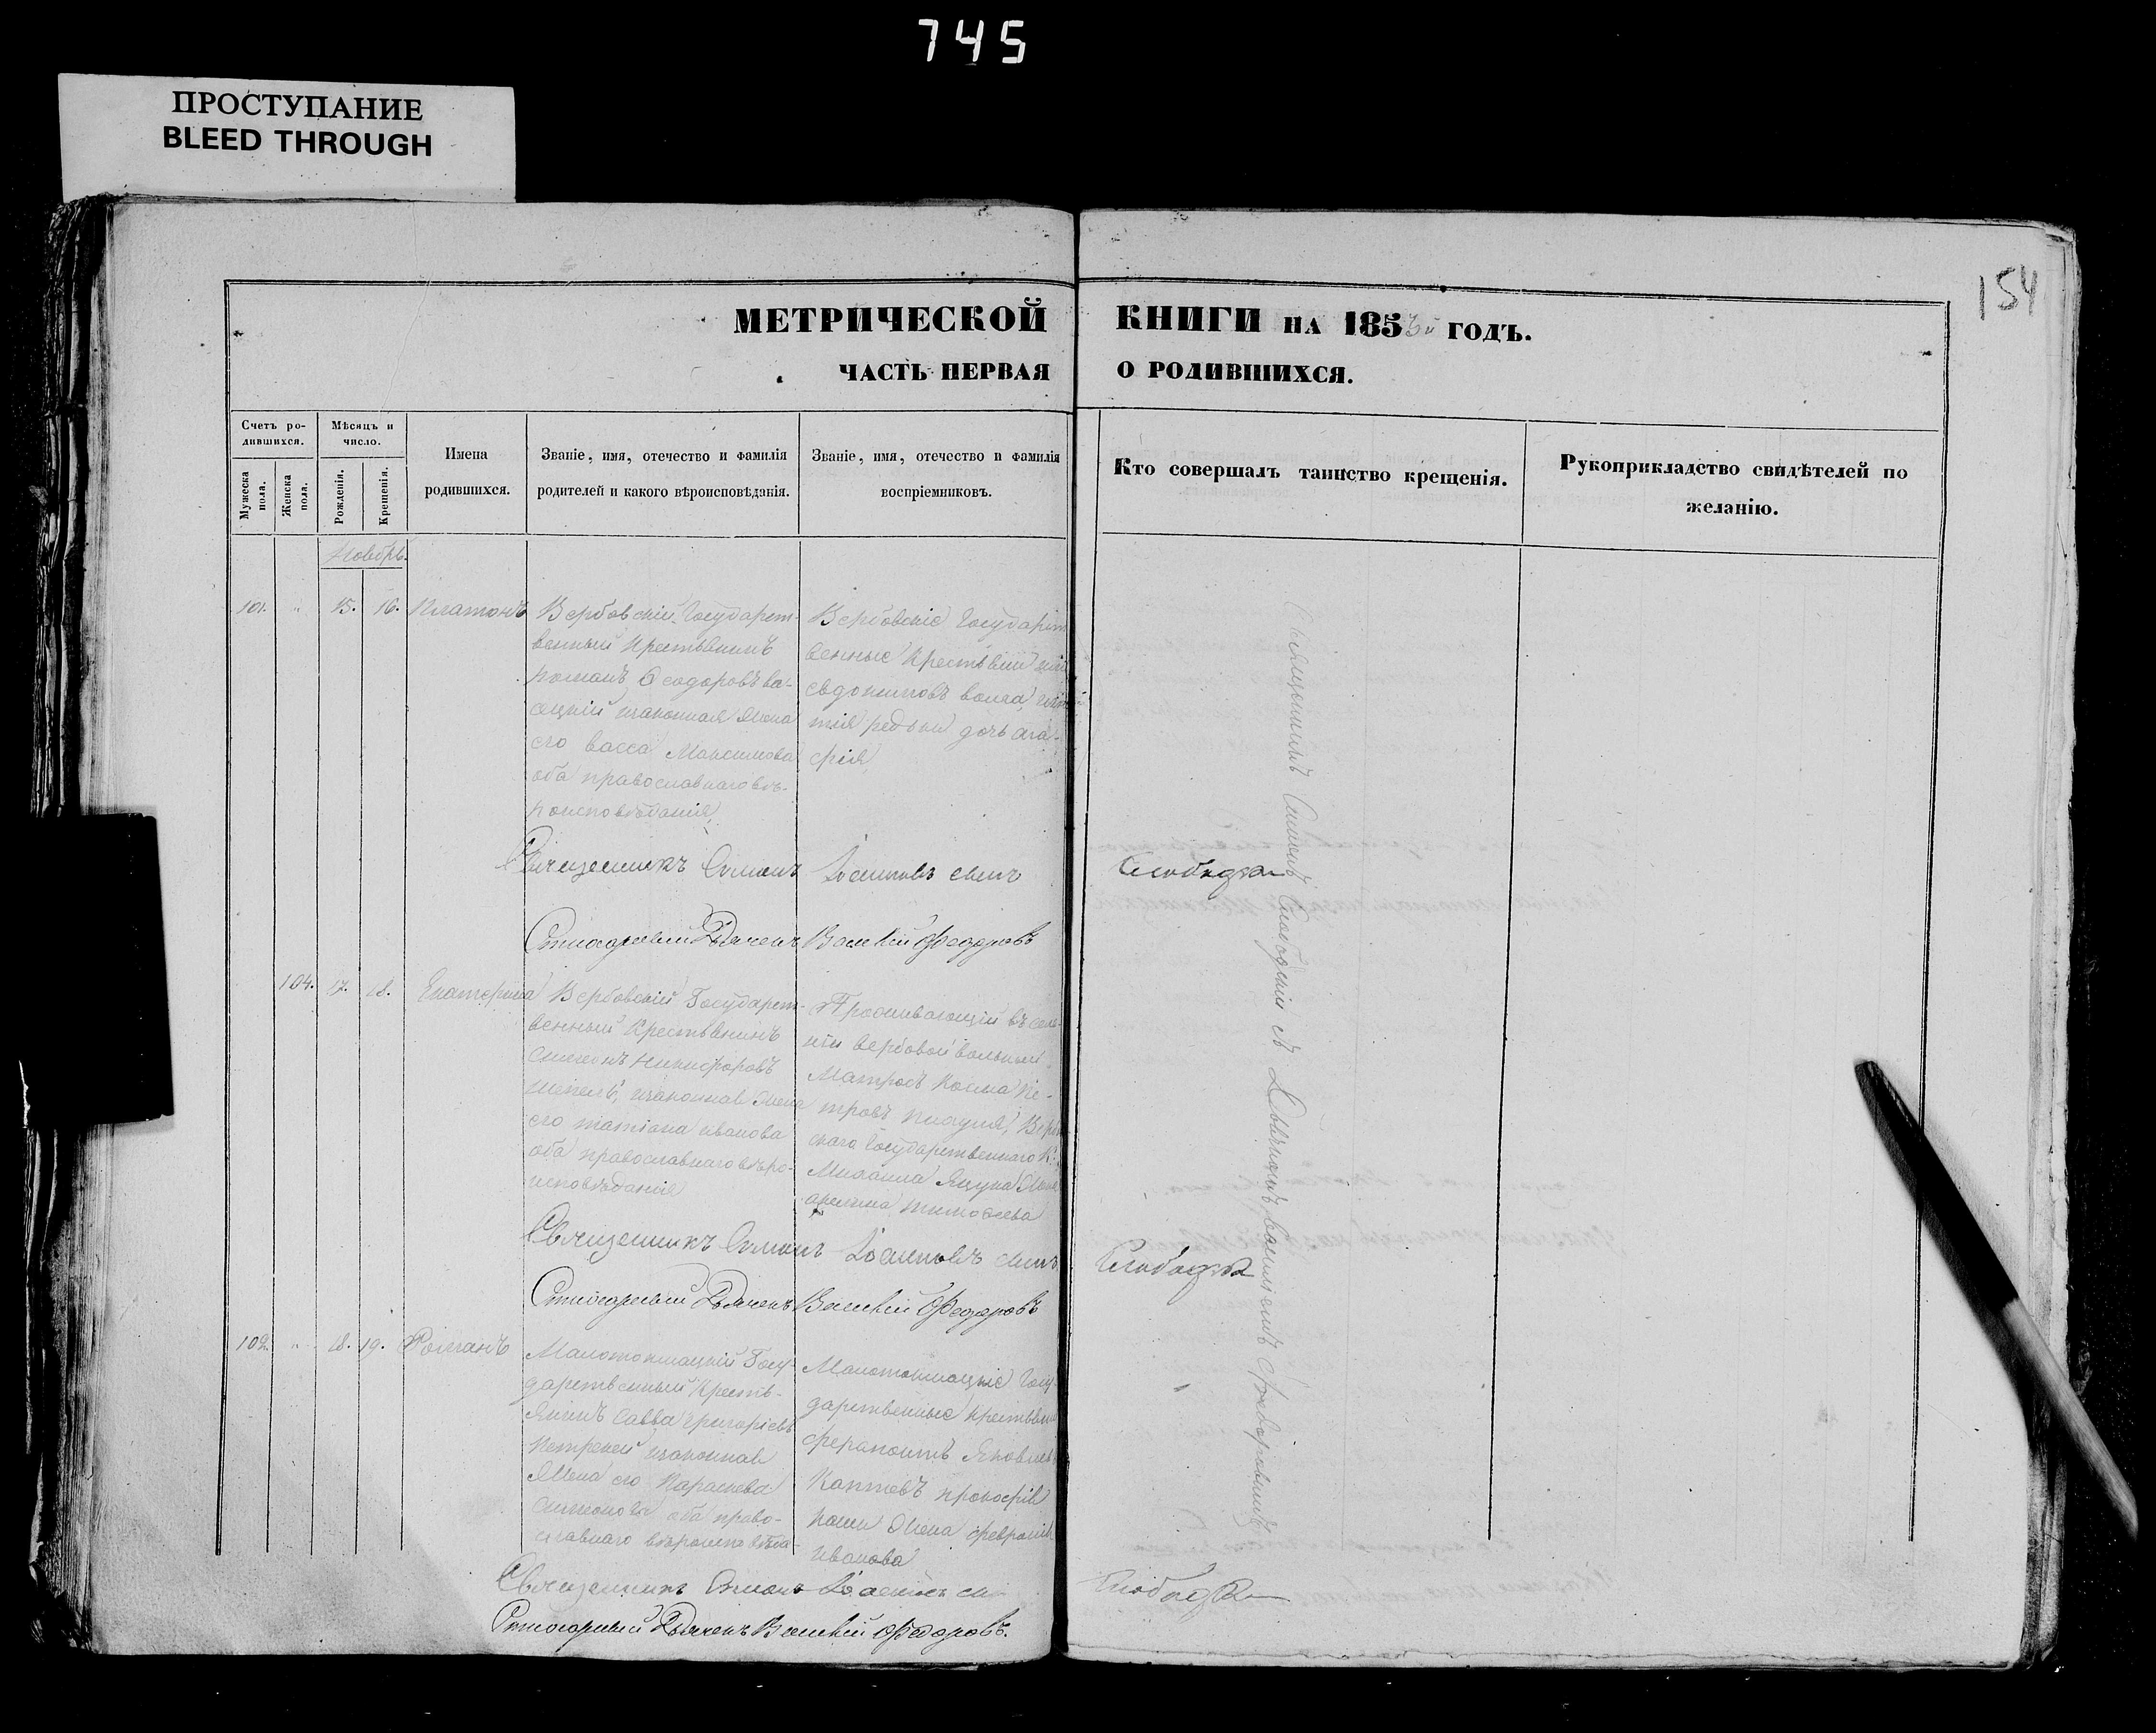 745
ПРОСТУПАНИЕ
BLEED THROUGH
154
МЕТРИЧЕСКОЙ КНИГИ НА 1853й ГОДЪ.
ЧАСТЬ ПЕРВАЯ О РОДИВШИХСЯ.
Счетъ родившихся.
Мужеска пола.
Женска пола.
Мѣсяцъ и число.
Рожденія.
Крещенія.
Имена родившихся.
Званіе, имя, отечество и фамилія родителей и какого вѣроисповѣданія.
Званіе, имя, отечество и фамилія воспріемниковъ.
Кто совершалъ таинство крещенія.
Рукоприкладство свидѣтелей по желанію.
Ноябрь.
101. " 15. 16. Платонъ
Вербовскій Государст-
венный Крестьянинъ
Романъ Ѳеодоровъ
законная Жена
его Васса Максимова
оба православнаго вѣ-
роисповѣданія
Вербовскіе Государст
венные Крестьяни
дочь Ага-
фія
Священникъ Симонъ Іосиповъ сынъ Слободзк
Стихарный Дьячекъ Василій Федоровъ
104. 17. 18. Екатерина
Вербовскій Государст-
венный Крестьянинъ
Симеонъ Никифоровъ
законная Жена
его Татіана Иванова
оба православнаго вѣро-
исповѣданія
Проживающій въ селе-
ніи Вербовой вольный
Матросъ Косма Пе-
тровъ
скаго Государственнаго К
Михаила Яцука Жена
Акилина Тимоѳеева
Священникъ Симонъ Іосиповъ сынъ Слободзк
Стихарный Дьячекъ Василій Федоровъ
102. " 18. 19. Романъ
Малотокмацкій Госу-
дарственный Кресть-
янинъ Савва Григоріевъ
законная
Жена его Параскева
Симеонова оба право-
славнаго вѣроисповѣда-
Малотокмацкіе Госу-
дарственные Крестьяни
Ферапонтъ Яковлевъ
Каптевъ Прокофія
Жена Февронія
Иванова
Священникъ Симонъ Іосиповъ сы Слободзк
Стихарный Дьячекъ Василій Федоровъ.
Священникъ Симеонъ Слободскій съ Дьячкомъ Василіемъ